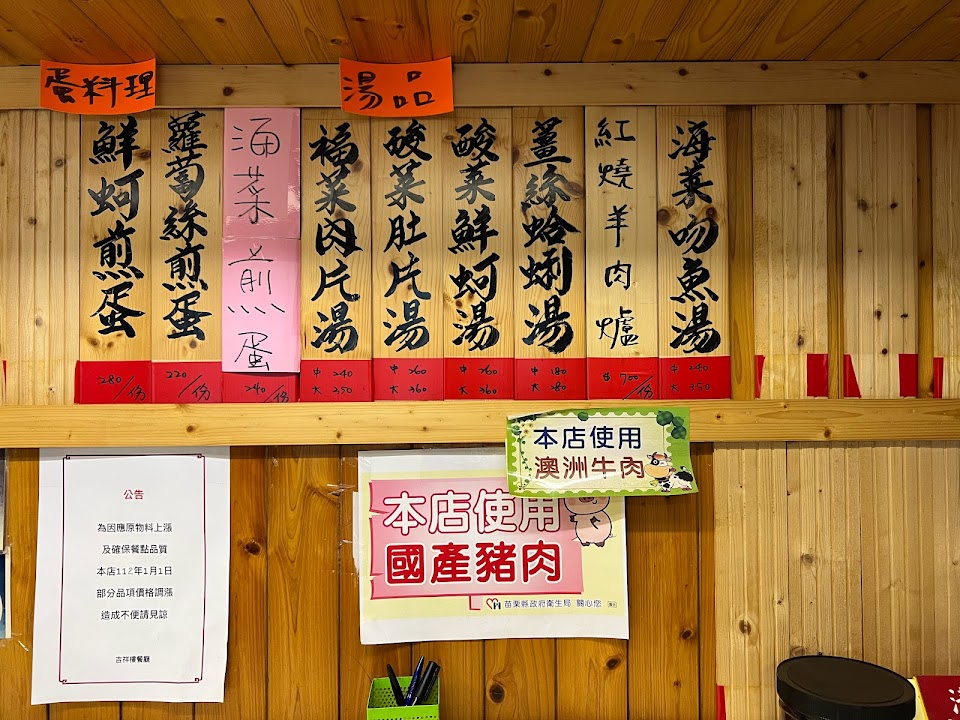 蛋料理
鮮蚵煎蛋
280/份
蘿蔔絲煎蛋
220/份
海菜煎蛋
240/份
湯品
福菜肉片湯
中 240
大 350
酸菜肚片湯
中 260
大 360
酸菜鮮蚵湯
中 260
大 360
薑絲蛤蜊湯
中 180
大 280
紅燒羊肉爐
$700/份
海菜吻魚湯
中 240
大 350
公告
為因應原物料上漲
及確保餐點品質
本店112年1月1日
部分品項價格調漲
造成不便請見諒
吉祥樓餐廳
本店使用
澳洲牛肉
本店使用
國產豬肉
苗栗縣政府衛生局 關心您